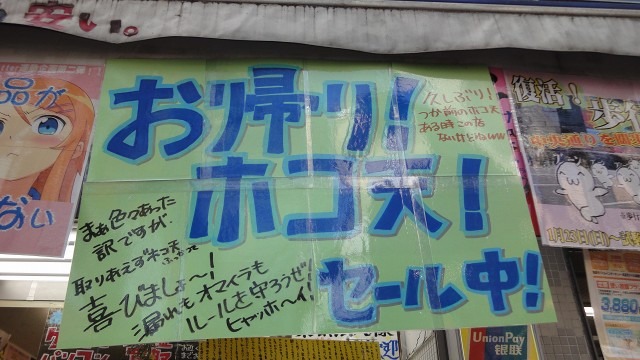 安い。
品が
ない
お帰り!
ホコ天!
セール中!
久しぶり!
つか前のホコ天
ある時この店
ないけどねwww
まぁ色々あった
訳ですが、
取りあえずホコ天
喜びましょ〜!
漏れもオマイラも
ルールを守ろうぜ!
ヒャッホーイ!
復活!
1月23日(日)
3,880
UnionPay
银联